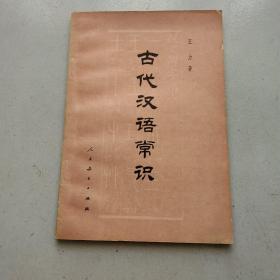 王力著
古代汉语常识
人民教育出版社